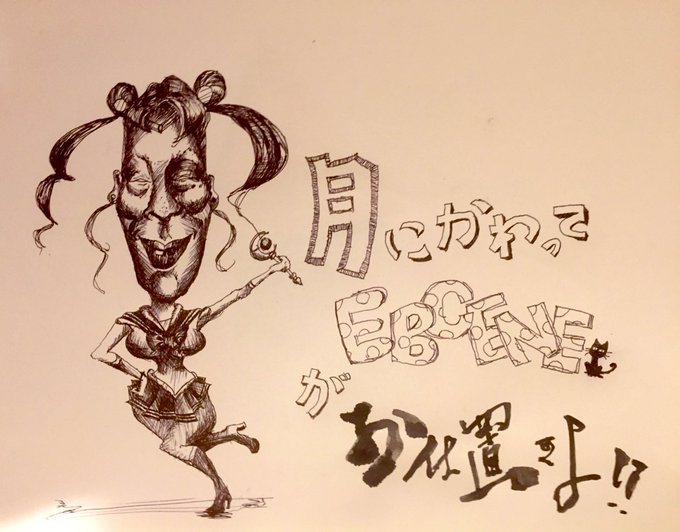 月にかわって
EBOENE
が
お仕置きよ!!